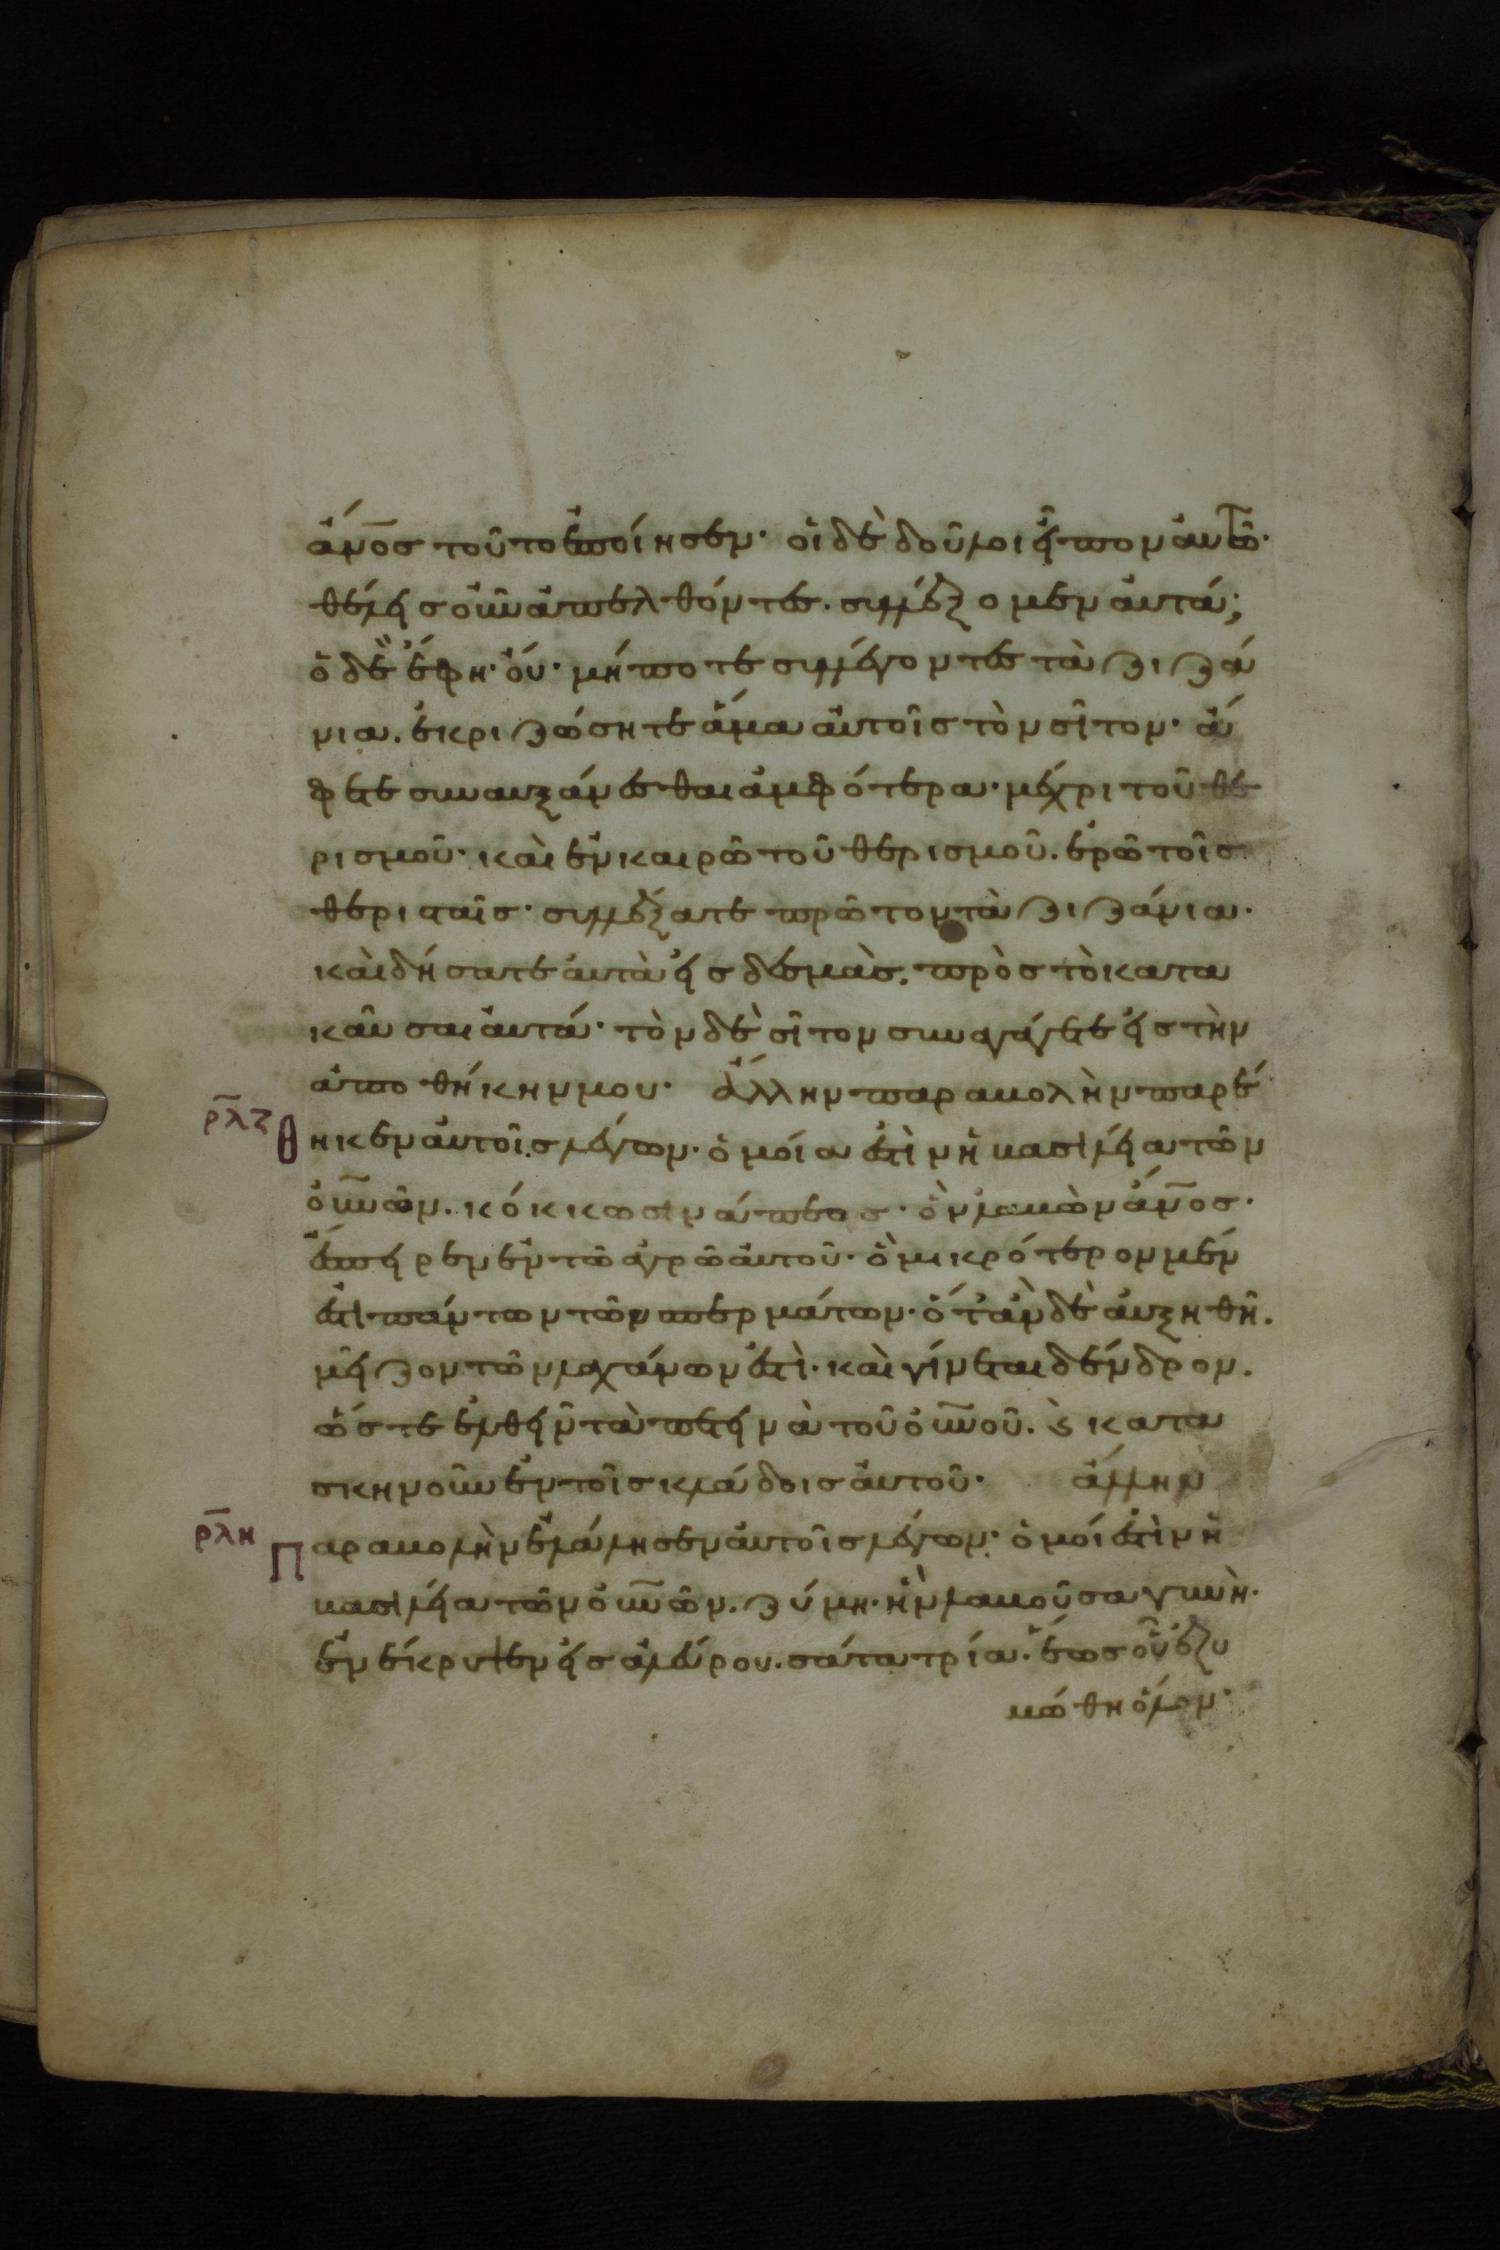 ἄν̅ο̅σ τοῦτο ἐποίησεν· οἱ δὲ δοῦλοι εἶπον αὐτῶ·
θέλεισ οὖν ἀπελθόντεσ. συλλέξομεν αὐτά;
ὁ δὲ ἔφη· οὔ· μήποτε συλλέγοντεσ τὰ ζιζά
νια. ἐκριζώσητε ἅμα αὐτοῖσ τὸν σῖτον· ἄ
φετε συναυξάνεσθαι ἀμφότερα· μέχρι τοῦ θε
ρισμοῦ· καὶ ἐν καιρῶ τοῦ θερισμοῦ. ἐρῶ τοῖσ
θερισταῖσ· συλλέξατε πρῶτον τὰ ζιζάνια·
καὶ δήσατε αὐτὰ εἰσ δεσμὰσ. πρὸσ τὸ κατα
καῦσαι αὐτά· τὸν δὲ σῖτον συναγάγετε εἰσ τὴν
ἀποθήκην μου· ἄλλην παραβολὴν παρέ
ρ̅λ̅ζ̅ θηκεν αὐτοῖσ λέγων· ὁμοία ἐστὶν ἡ βασιλεία τῶν
οὐ̅ν̅ῶν. κόκκω σινάπεωσ· ὃν λαβὼν ἄν̅ο̅σ·
ἔσπειρεν ἐν τῶ ἀγρῶ αὐτοῦ· ὃ μικρότερον μέν
ἐστι πάντων τῶν σπερμάτων· ὅτἀν δὲ αὐξηθῆ.
μεῖζον τῶν λαχάνων ἐστὶ· καὶ γίνεται δένδρον.
ὥστε ἐλθεῖν τὰ πετεινὰ τοῦ οὐ̅ν̅οῦ. ϗ̀ κατα
σκηνοῦν ἐν τοῖσ κλάδοισ αὐτοῦ· ἄλλην
ρ̅λ̅η̅ Παραβολὴν ἐλάλησεν αὐτοῖσ λέγων· ὁμοί ἐστὶν ἡ
βασιλεία τῶν οὐ̅ν̅ῶν. ζύμη· ἣν λαβοῦσα γυνὴ·
ἐνέκρυψεν εἰσ ἀλεύρου. σάτα τρία. ἕωσ οὗ ἐζυ
μώθη ὅλον·